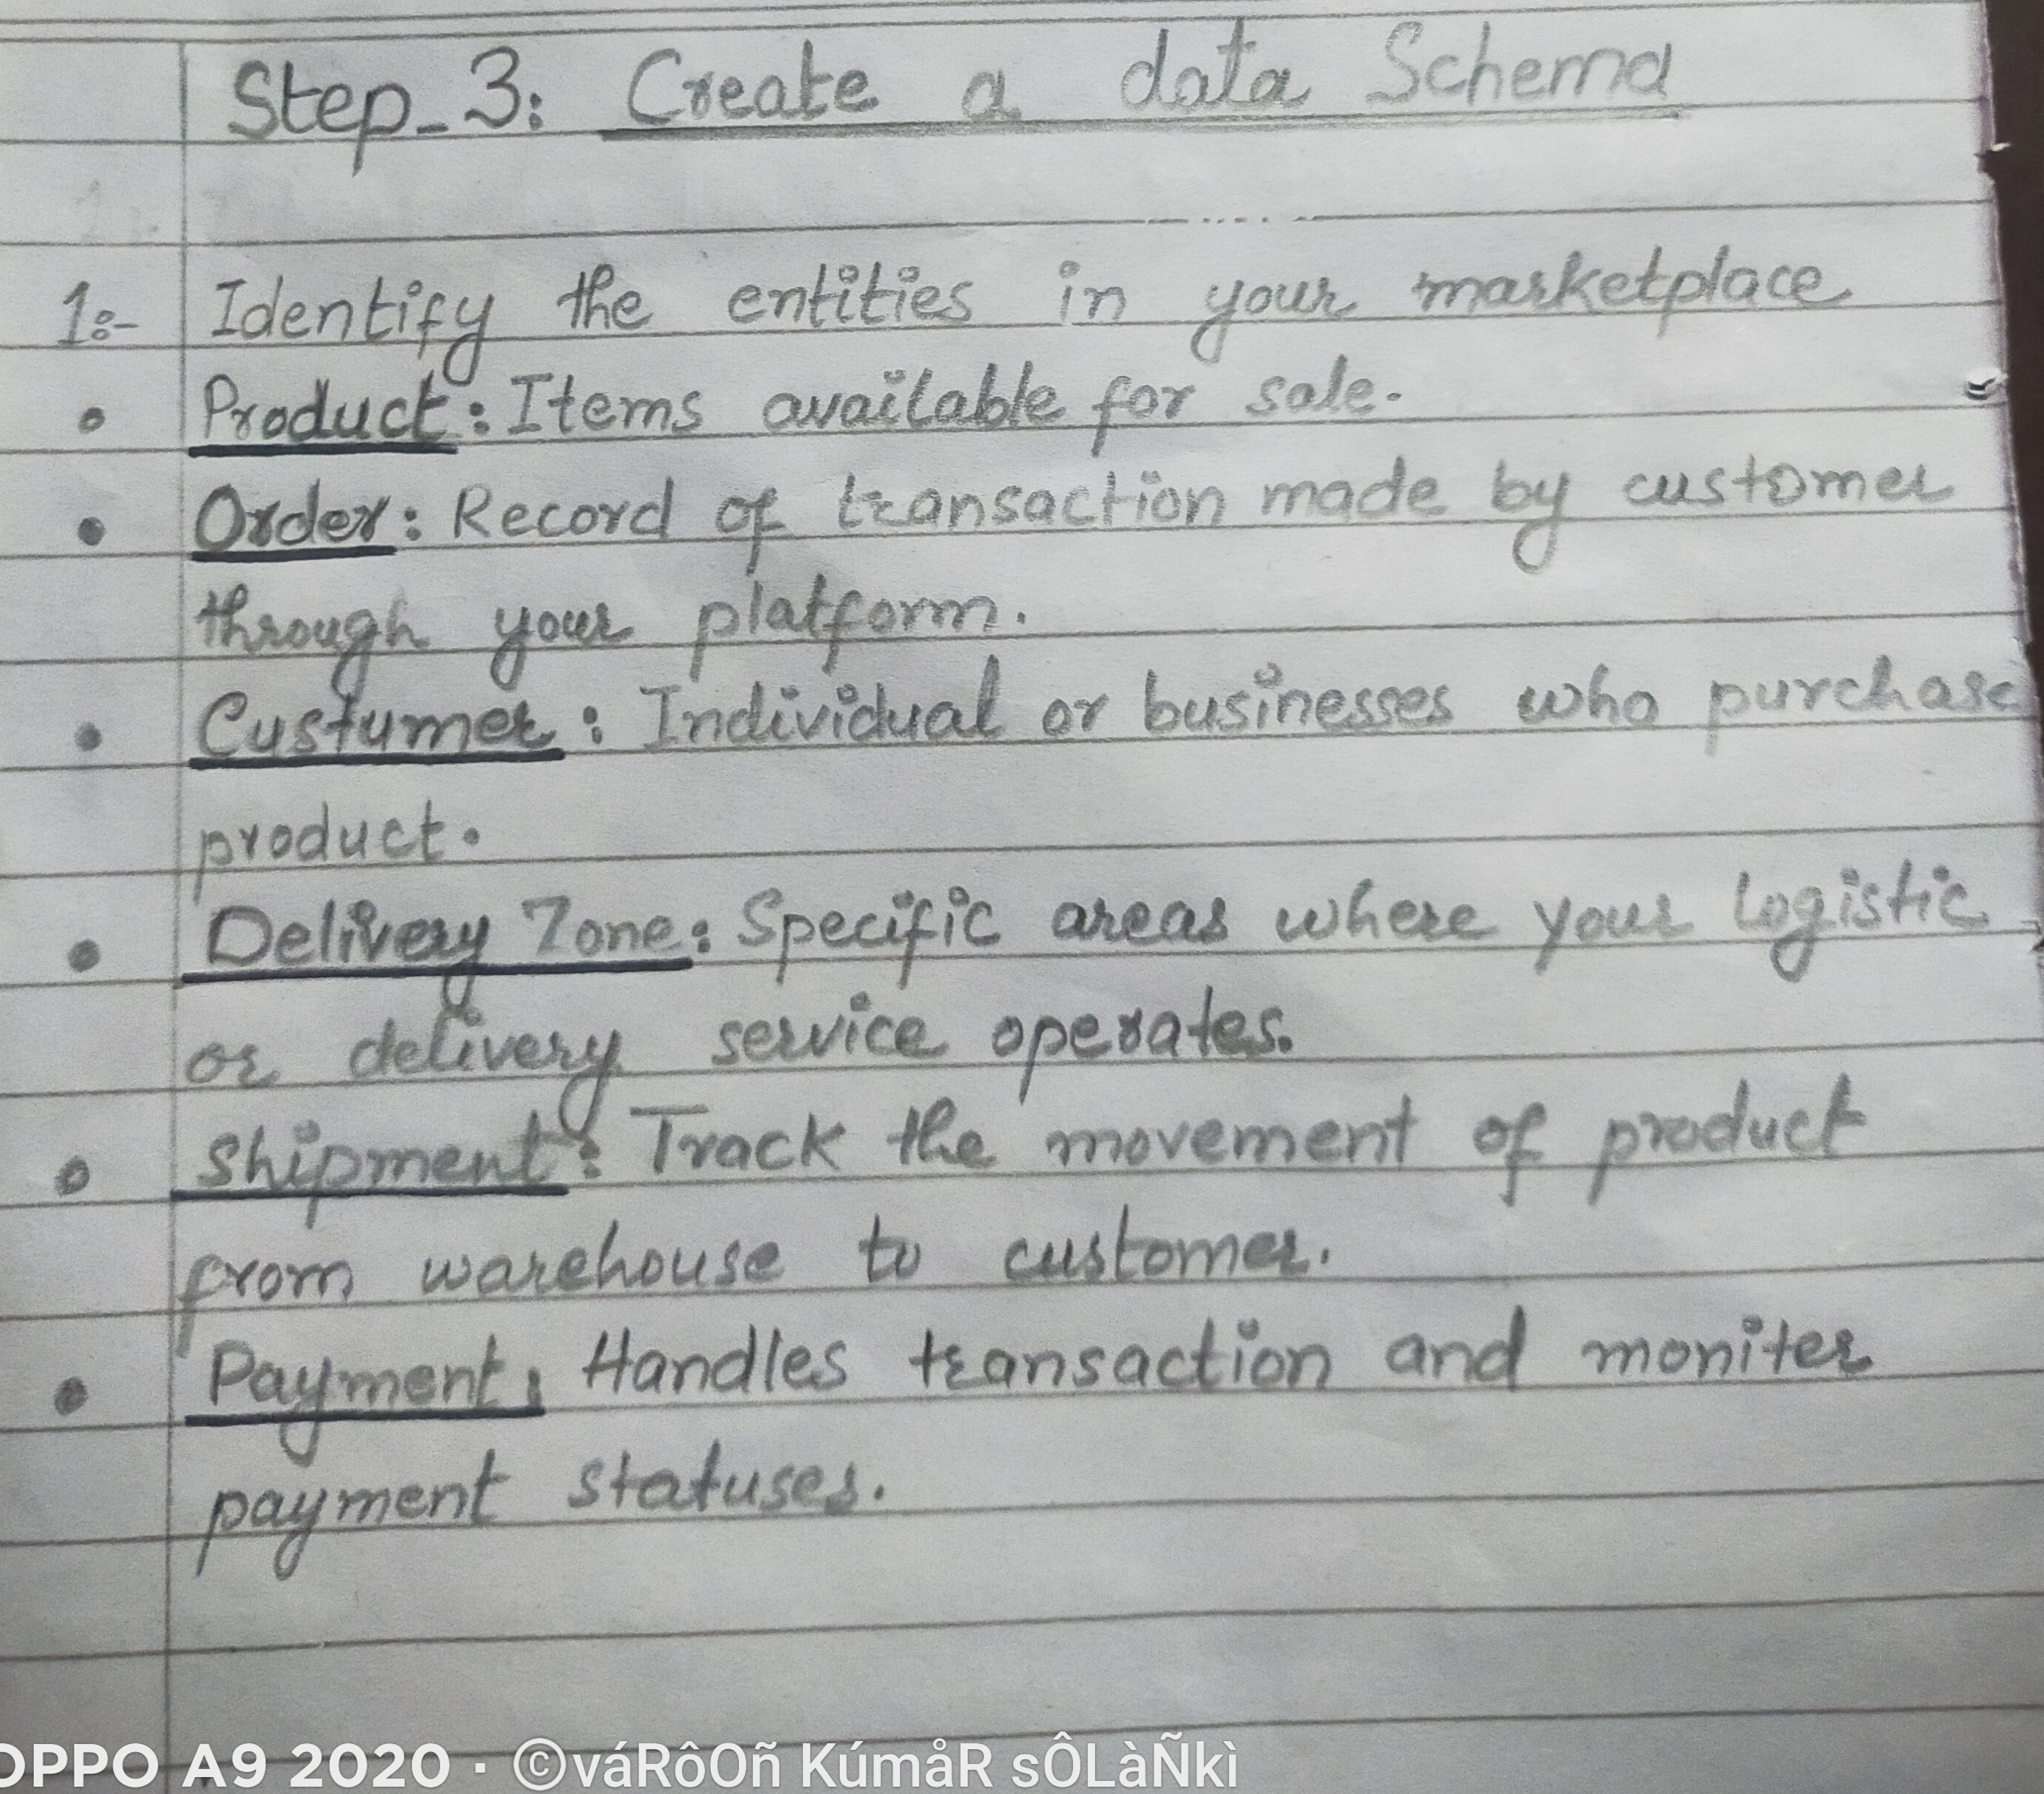 Step-3: Create a data Schema
1:- Identify the entities in your marketplace
• Product: Items available for sale.
• Order: Record of transaction made by customer
through your platform.
• Custumer: Individual or businesses who purchase
product.
• Delivery Zone: Specific areas where your logistic
or delivery service operates.
• Shipment: Track the movement of product
from warehouse to customer.
• Payment: Handles transaction and moniter
payment statuses.
OPPO A9 2020 · ©váRôOñ KúmåR sÔLàÑkì